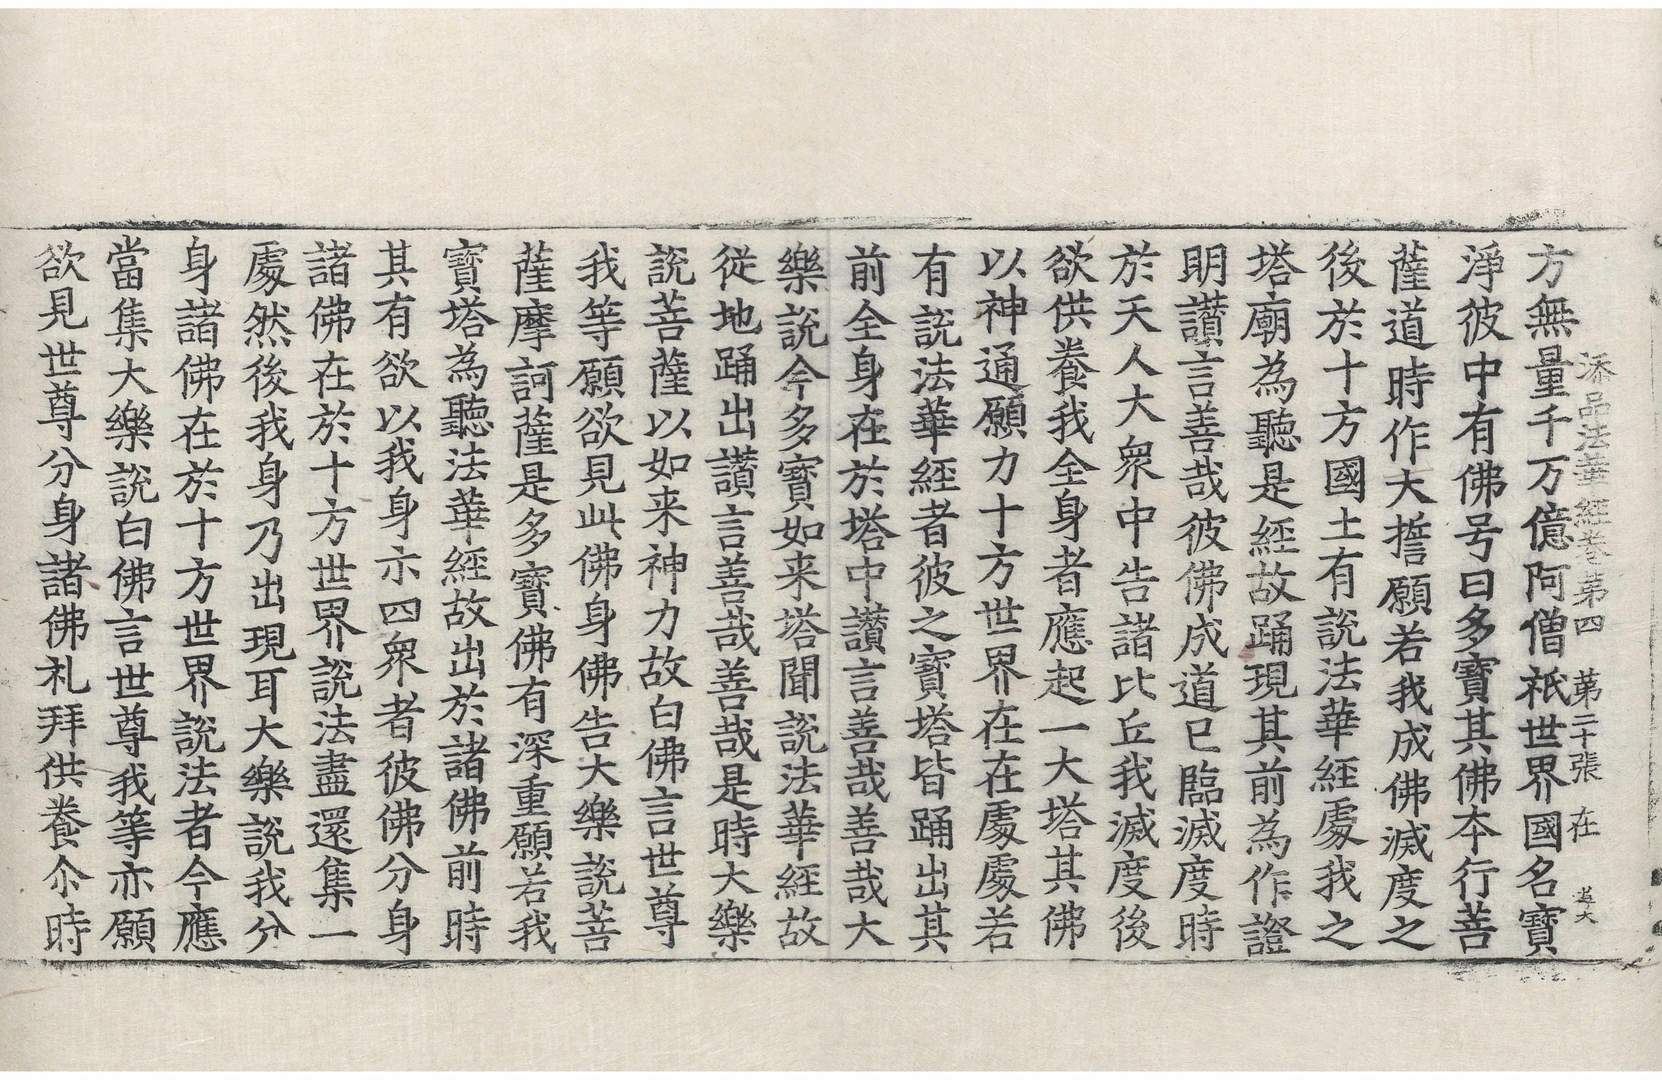 添品法華經卷第四　第二十張　在
方無量千万億阿僧祇世界國名寶
淨彼中有佛号曰多寶其佛本行菩
薩道時作大誓願若我成佛滅度之
後於十方國土有說法華經處我之
塔廟為聽是經故踊現其前為作證
明讃言善哉彼佛成道已臨滅度時
於天人大衆中告諸比丘我滅度後
欲供養我全身者應起一大塔其佛
以神通願力十方世界在在處處若
有說法華經者彼之寶塔皆踊出其
前全身在於塔中讃言善哉善哉大
樂說今多寶如来塔聞說法華經故
從地踊出讃言善哉善哉是時大樂
說菩薩以如来神力故白佛言世尊
我等願欲見此佛身佛告大樂說菩
薩摩訶薩是多寶佛有深重願若我
寶塔為聽法華經故出於諸佛前時
其有欲以我身示四衆者彼佛分身
諸佛在於十方世界說法盡還集一
處然後我身乃出現耳大樂說我分
身諸佛在於十方世界說法者今應
當集大樂說白佛言世尊我等亦願
欲見世尊分身諸佛礼拜供養尒時